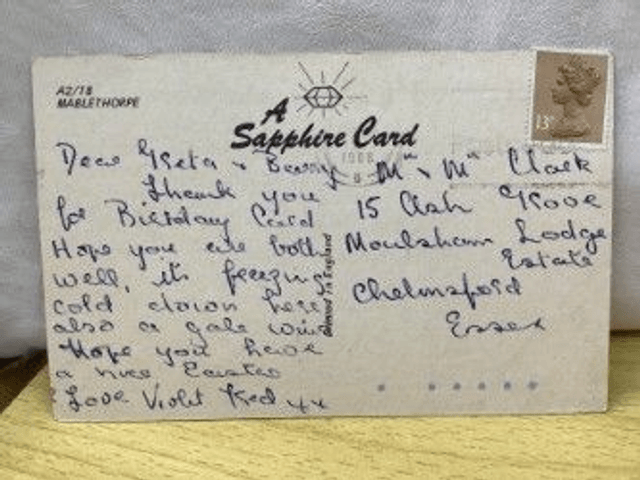 A2/18
MABLETHORPE
A
Sapphire Card
13P
1988
Dear Greta & Barry
Thank you
for Birthday Card
Hope you are both
well, it's freezing
cold down here
also a gale wind
Hope you have
a nice Easter
Love Violet & Fred xx
Printed in England
Mr & Mrs Clark
15 Ash Grove
Moulsham Lodge
Estate
Chelmsford
Essex